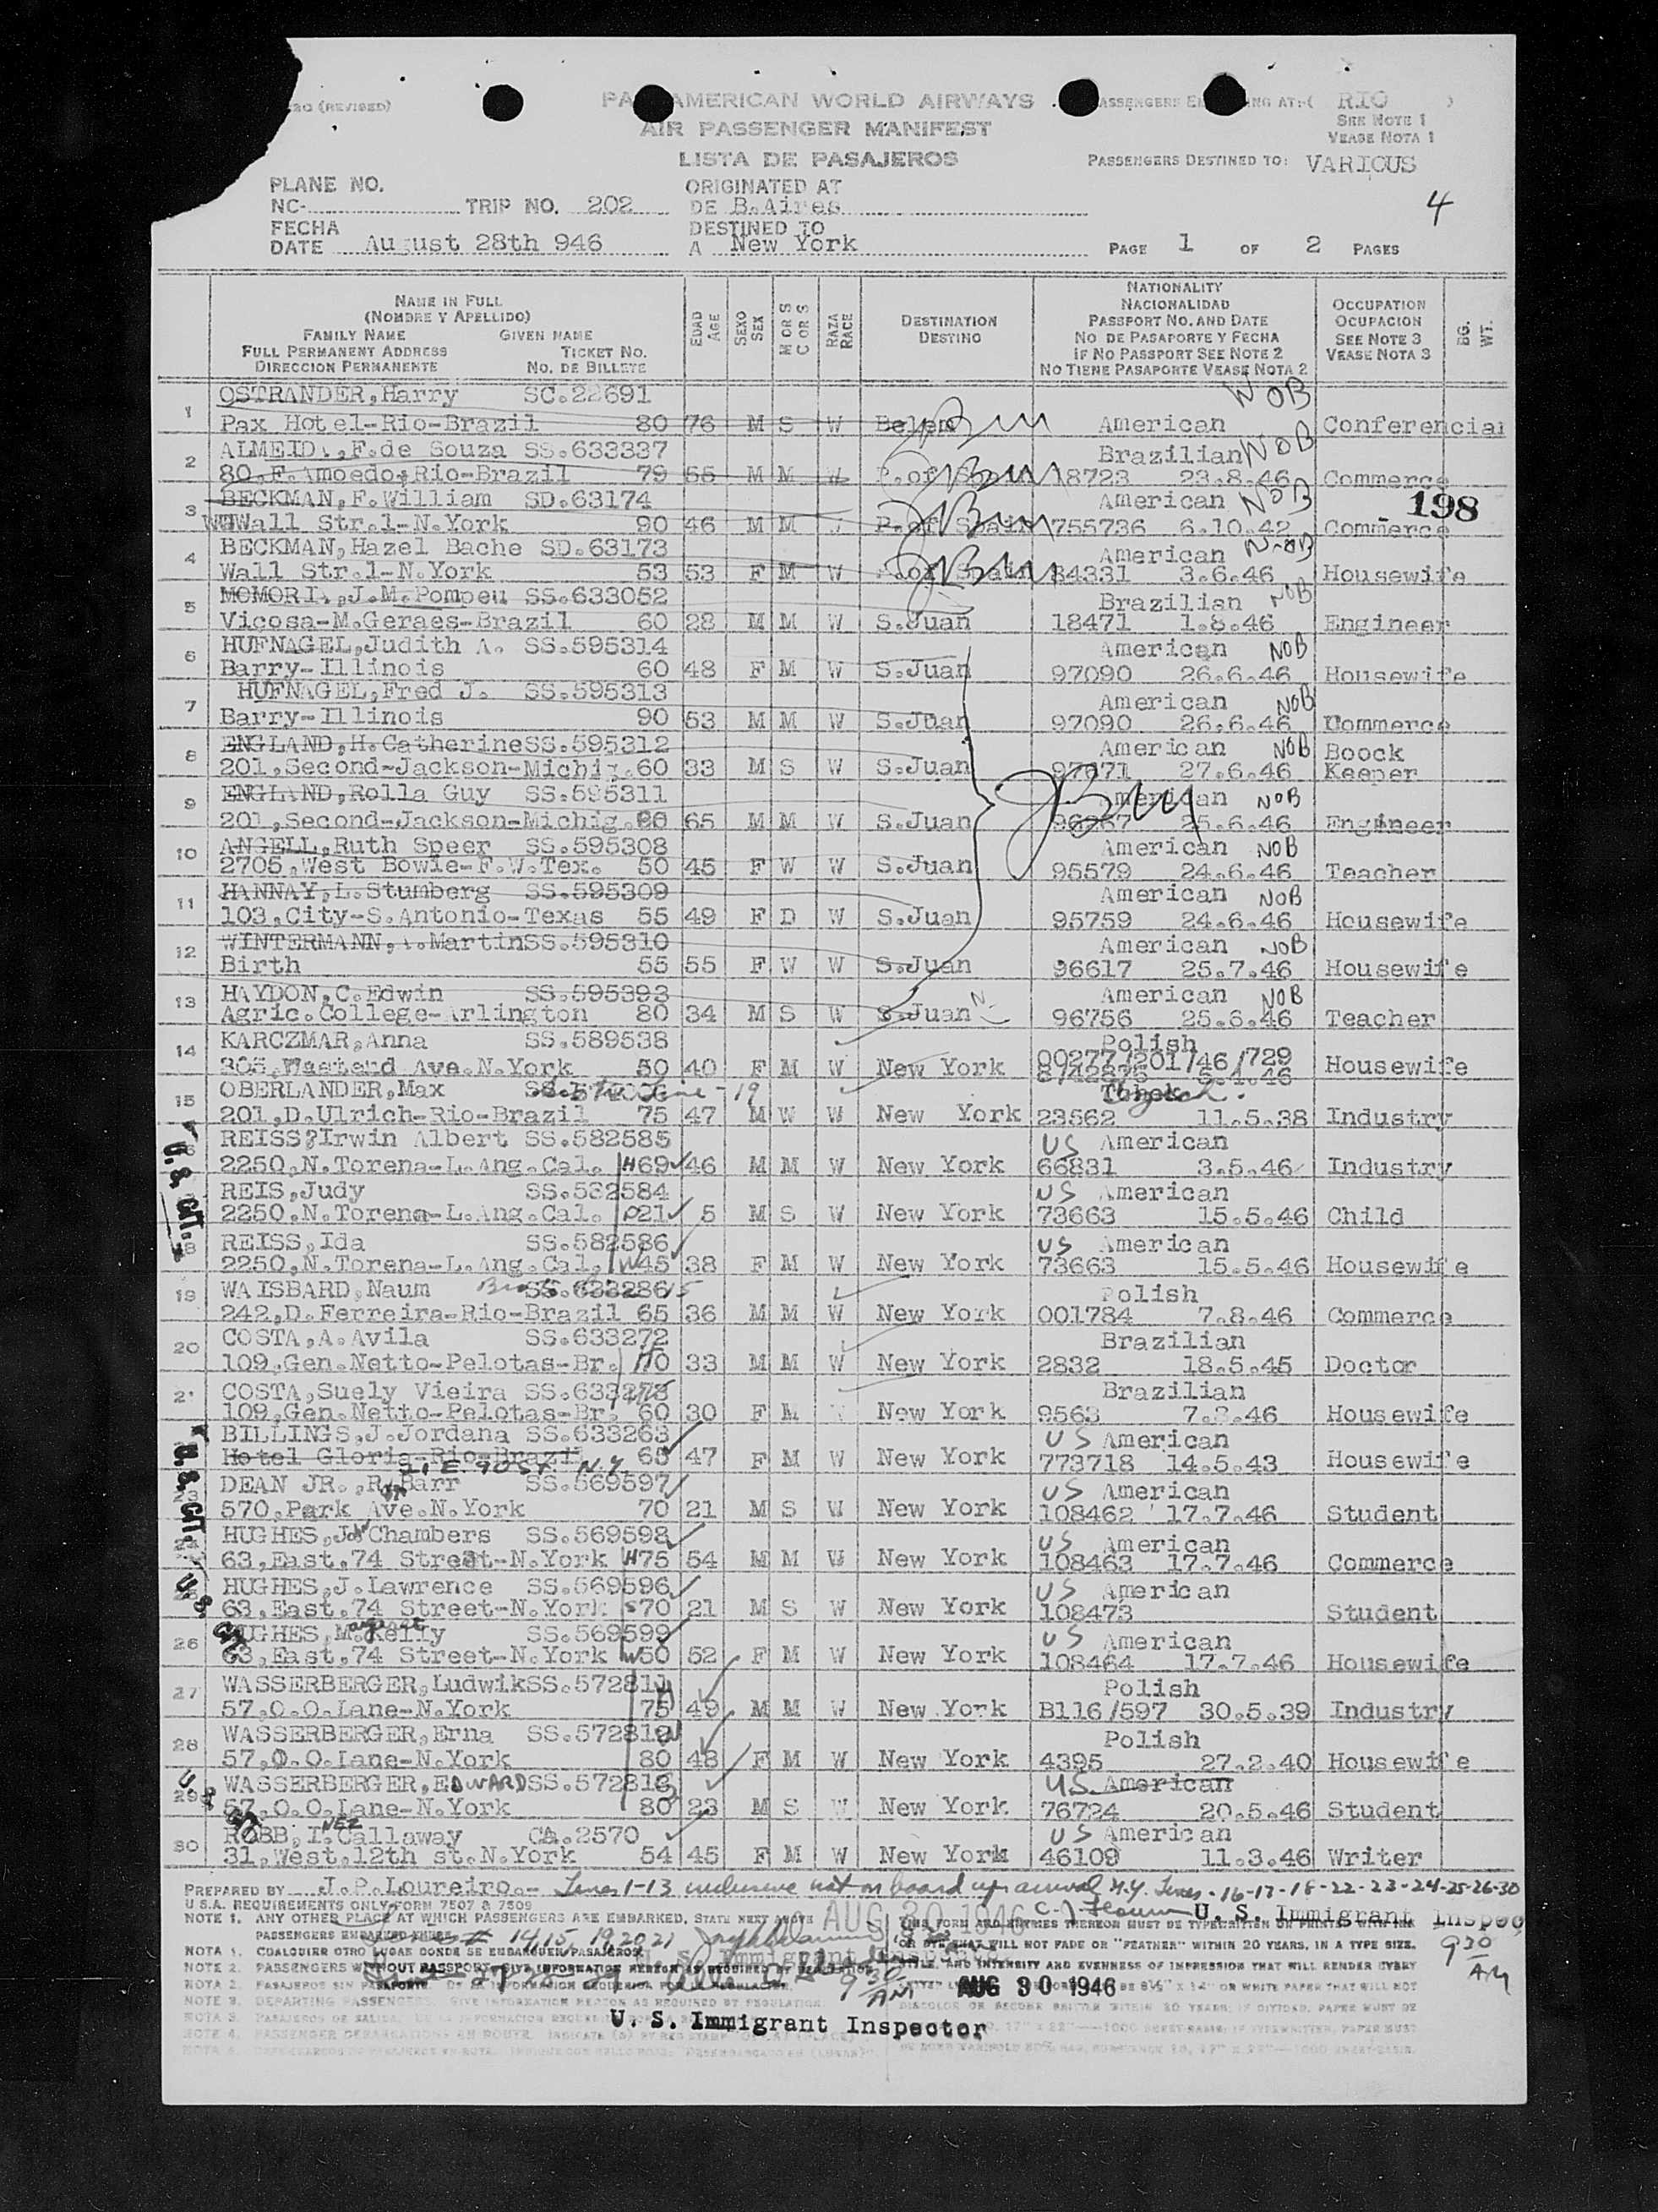 30 (REVISED)
PAN AMERICAN WORLD AIRWAYS
PASSENGERS EMBARKING AT:( RIO )
AIR PASSENGER MANIFEST
SEE NOTE 1
VEASE NOTA 1
LISTA DE PASAJEROS
PASSENGERS DESTINED TO: VARIOUS
PLANE NO. ORIGINATED AT
NC- TRIP NO. 202 DE B.Aires
4
FECHA DESTINED TO
DATE August 28th 946 A New York PAGE 1 OF 2 PAGES
NAME IN FULL
(NOMBRE Y APELLIDO)
FAMILY NAME GIVEN NAME
FULL PERMANENT ADDRESS TICKET NO.
DIRECCION PERMANENTE NO. DE BILLETE
EDAD AGE
SEXO SEX
M OR S C OR S
RAZA RACE
DESTINATION DESTINO
NATIONALITY
NACIONALIDAD
PASSPORT NO. AND DATE
NO DE PASAPORTE Y FECHA
IF NO PASSPORT SEE NOTE 2
NO TIENE PASAPORTE VEASE NOTA 2
OCCUPATION
OCUPACION
SEE NOTE 3
VEASE NOTA 3
BG. WT.
1 OSTRANDER,Harry SC.22691 NOB
Pax Hotel-Rio-Brazil 80 76 M S W Belem American Conferencial
2 ALMEIDA,F.de Souza SS.633337 Brazilian NOB
80,F.Amoedo,Rio-Brazil 79 55 M M W P.of Spain 18723 23.8.46 Commerce
3 BECKMAN,F.William SD.63174 American NOB
Wall Str.1-N.York 90 46 M M W P.of Spain 755736 6.10.42 Commerce
198
4 BECKMAN,Hazel Bache SD.63173 American NOB
Wall Str.1-N.York 53 53 F M W P.of Spain 84331 3.6.46 Housewife
5 MOMORI.,J.M.Pompeu SS.633052 Brazilian NOB
Vicosa-M.Geraes-Brazil 60 28 M M W S.Juan 18471 1.8.46 Engineer
6 HUFNAGEL,Judith A. SS.595314 American NOB
Barry-Illinois 60 48 F M W S.Juan 97090 26.6.46 Housewife
7 HUFNAGEL,Fred J. SS.595313 American NOB
Barry-Illinois 90 53 M M W S.Juan 97090 26.6.46 Commerce
8 ENGLAND,H.Catherine SS.595312 American NOB Boock
201,Second-Jackson-Michig.60 33 M S W S.Juan 97671 27.6.46 Keeper
9 ENGLAND,Rolla Guy SS.595311 American NOB
201,Second-Jackson-Michig. 65 M M W S.Juan 25.6.46 Engineer
10 ANGELL,Ruth Speer SS.595308 American NOB
2705,West Bowie-F.W.Tex. 50 45 F W W S.Juan 95579 24.6.46 Teacher
11 HANNAY,L.Stumberg SS.595309 American NOB
103,City-S.Antonio-Texas 55 49 F D W S.Juan 95759 24.6.46 Housewife
12 WINTERMANN,A.Martin SS.595310 American NOB
Birth 55 55 F W W S.Juan 96617 25.7.46 Housewife
13 HAYDON,C.Edwin SS.595393 American NOB
Agric.College-Arlington 80 34 M S W S.Juan 96756 25.6.46 Teacher
14 KARCZMAR,Anna SS.589538 Polish
305,Westend Ave.N.York 50 40 F M W New York 00277/201/46/729 Housewife
15 OBERLANDER,Max Czech.
201,D.Ulrich-Rio-Brazil 75 47 M W W New York 23562 11.5.38 Industry
U.S. CIT.
REISS,Irwin Albert SS.582585 US American
2250,N.Torena-L.Ang.Cal. H69 46 M M W New York 66831 3.5.46 Industry
REIS,Judy SS.582584 US American
2250.N.Torena-L.Ang.Cal. D21 5 M S W New York 73663 15.5.46 Child
REISS,Ida SS.582586 US American
2250,N.Torena-L.Ang.Cal. W45 38 F M W New York 73663 15.5.46 Housewife
19 WAISBARD,Naum SS.633286 Polish
242,D.Ferreira-Rio-Brazil 65 36 M M W New York 001784 7.8.46 Commerce
20 COSTA,A.Avila SS.633272 Brazilian
109,Gen.Netto-Pelotas-Br. 70 33 M M W New York 2832 18.5.45 Doctor
21 COSTA,Suely Vieira SS.633273 Brazilian
109,Gen.Netto-Pelotas-Br. 60 30 F M W New York 9563 7.8.46 Housewife
U.S. CIT.
BILLINGS,J.Jordana SS.633263 US American
Hotel Gloria-Rio-Brazil 65 47 F M W New York 773718 14.5.43 Housewife
21 E. 90 St N.Y.
DEAN JR.,R.Barr SS.569597 US American
570,Park Ave.N.York 70 21 M S W New York 108462 17.7.46 Student
HUGHES,John Chambers SS.569598 US American
63,East.74 Street-N.York H75 54 M M W New York 108463 17.7.46 Commerce
U.S.
HUGHES,J.Lawrence SS.569596 US American
63,East.74 Street-N.York S70 21 M S W New York 108473 Student
26 HUGHES,Margaret Kelly SS.569599 US American
63,East.74 Street-N.York W50 52 F M W New York 108464 17.7.46 Housewife
27 WASSERBERGER,Ludwik SS.572811 Polish
57,O.O.Lane-N.York 75 49 M M W New York B116/597 30.5.39 Industry
28 WASSERBERGER,Erna SS.572812 Polish
57,O.O.Lane-N.York 80 48 F M W New York 4395 27.2.40 Housewife
29 WASSERBERGER,EDWARD SS.572813 US American
57,O.O.Lane-N.York 80 23 M S W New York 76724 20.5.46 Student
30 ROBB,INEZ Callaway CA.2570 US American
31,West.12th st.N.York 54 45 F M W New York 46109 11.3.46 Writer
PREPARED BY J.P.Loureiro.- Lines 1-13 inclusive not on board upon arrival N.Y. Lines-16-17-18-22-23-24-25-26-30
U S.A. REQUIREMENTS ONLY: FORM 7507 & 7509
U. S. Immigrant Inspec
NOTE 1. ANY OTHER PLACE AT WHICH PASSENGERS ARE EMBARKED, STATE NEXT ABOVE
AUG 30 1946
THIS FORM AND ENTRIES THEREON MUST BE TYPEWRITTEN OR PRINTED WITH INK
PASSENGERS EMBARKED THERE. # 14,15, 19,20,21
NOTA 1. CUALQUIER OTRO LUGAR DONDE SE EMBARQUEN PASAJEROS
OR DYE THAT WILL NOT FADE OR "FEATHER" WITHIN 20 YEARS, IN A TYPE SIZE,
9 30 AM
NOTE 2. PASSENGERS WITHOUT PASSPORT, GIVE INFORMATION HEREON AS REQUIRED BY REGULATION
STYLE, AND INTENSITY AND EVENNESS OF IMPRESSION THAT WILL RENDER EVERY
NOTA 2. PASAJEROS SIN PASAPORTE.
9 30 AM
AUG 30 1946
NOTE 3. DEPARTING PASSENGERS GIVE INFORMATION HEREON AS REQUIRED BY REGULATION.
U. S. Immigrant Inspector